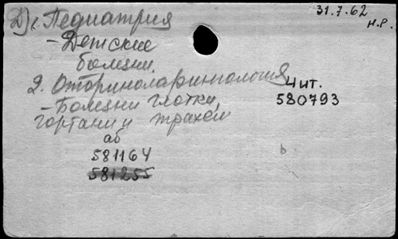 31.7.62
н.р.
1. Педиатрия
- Детские
болезни.
2. Оториноларингология
Чит.
- Болезни глотки,
580793
гортани и трахеи
аб
581164
581255